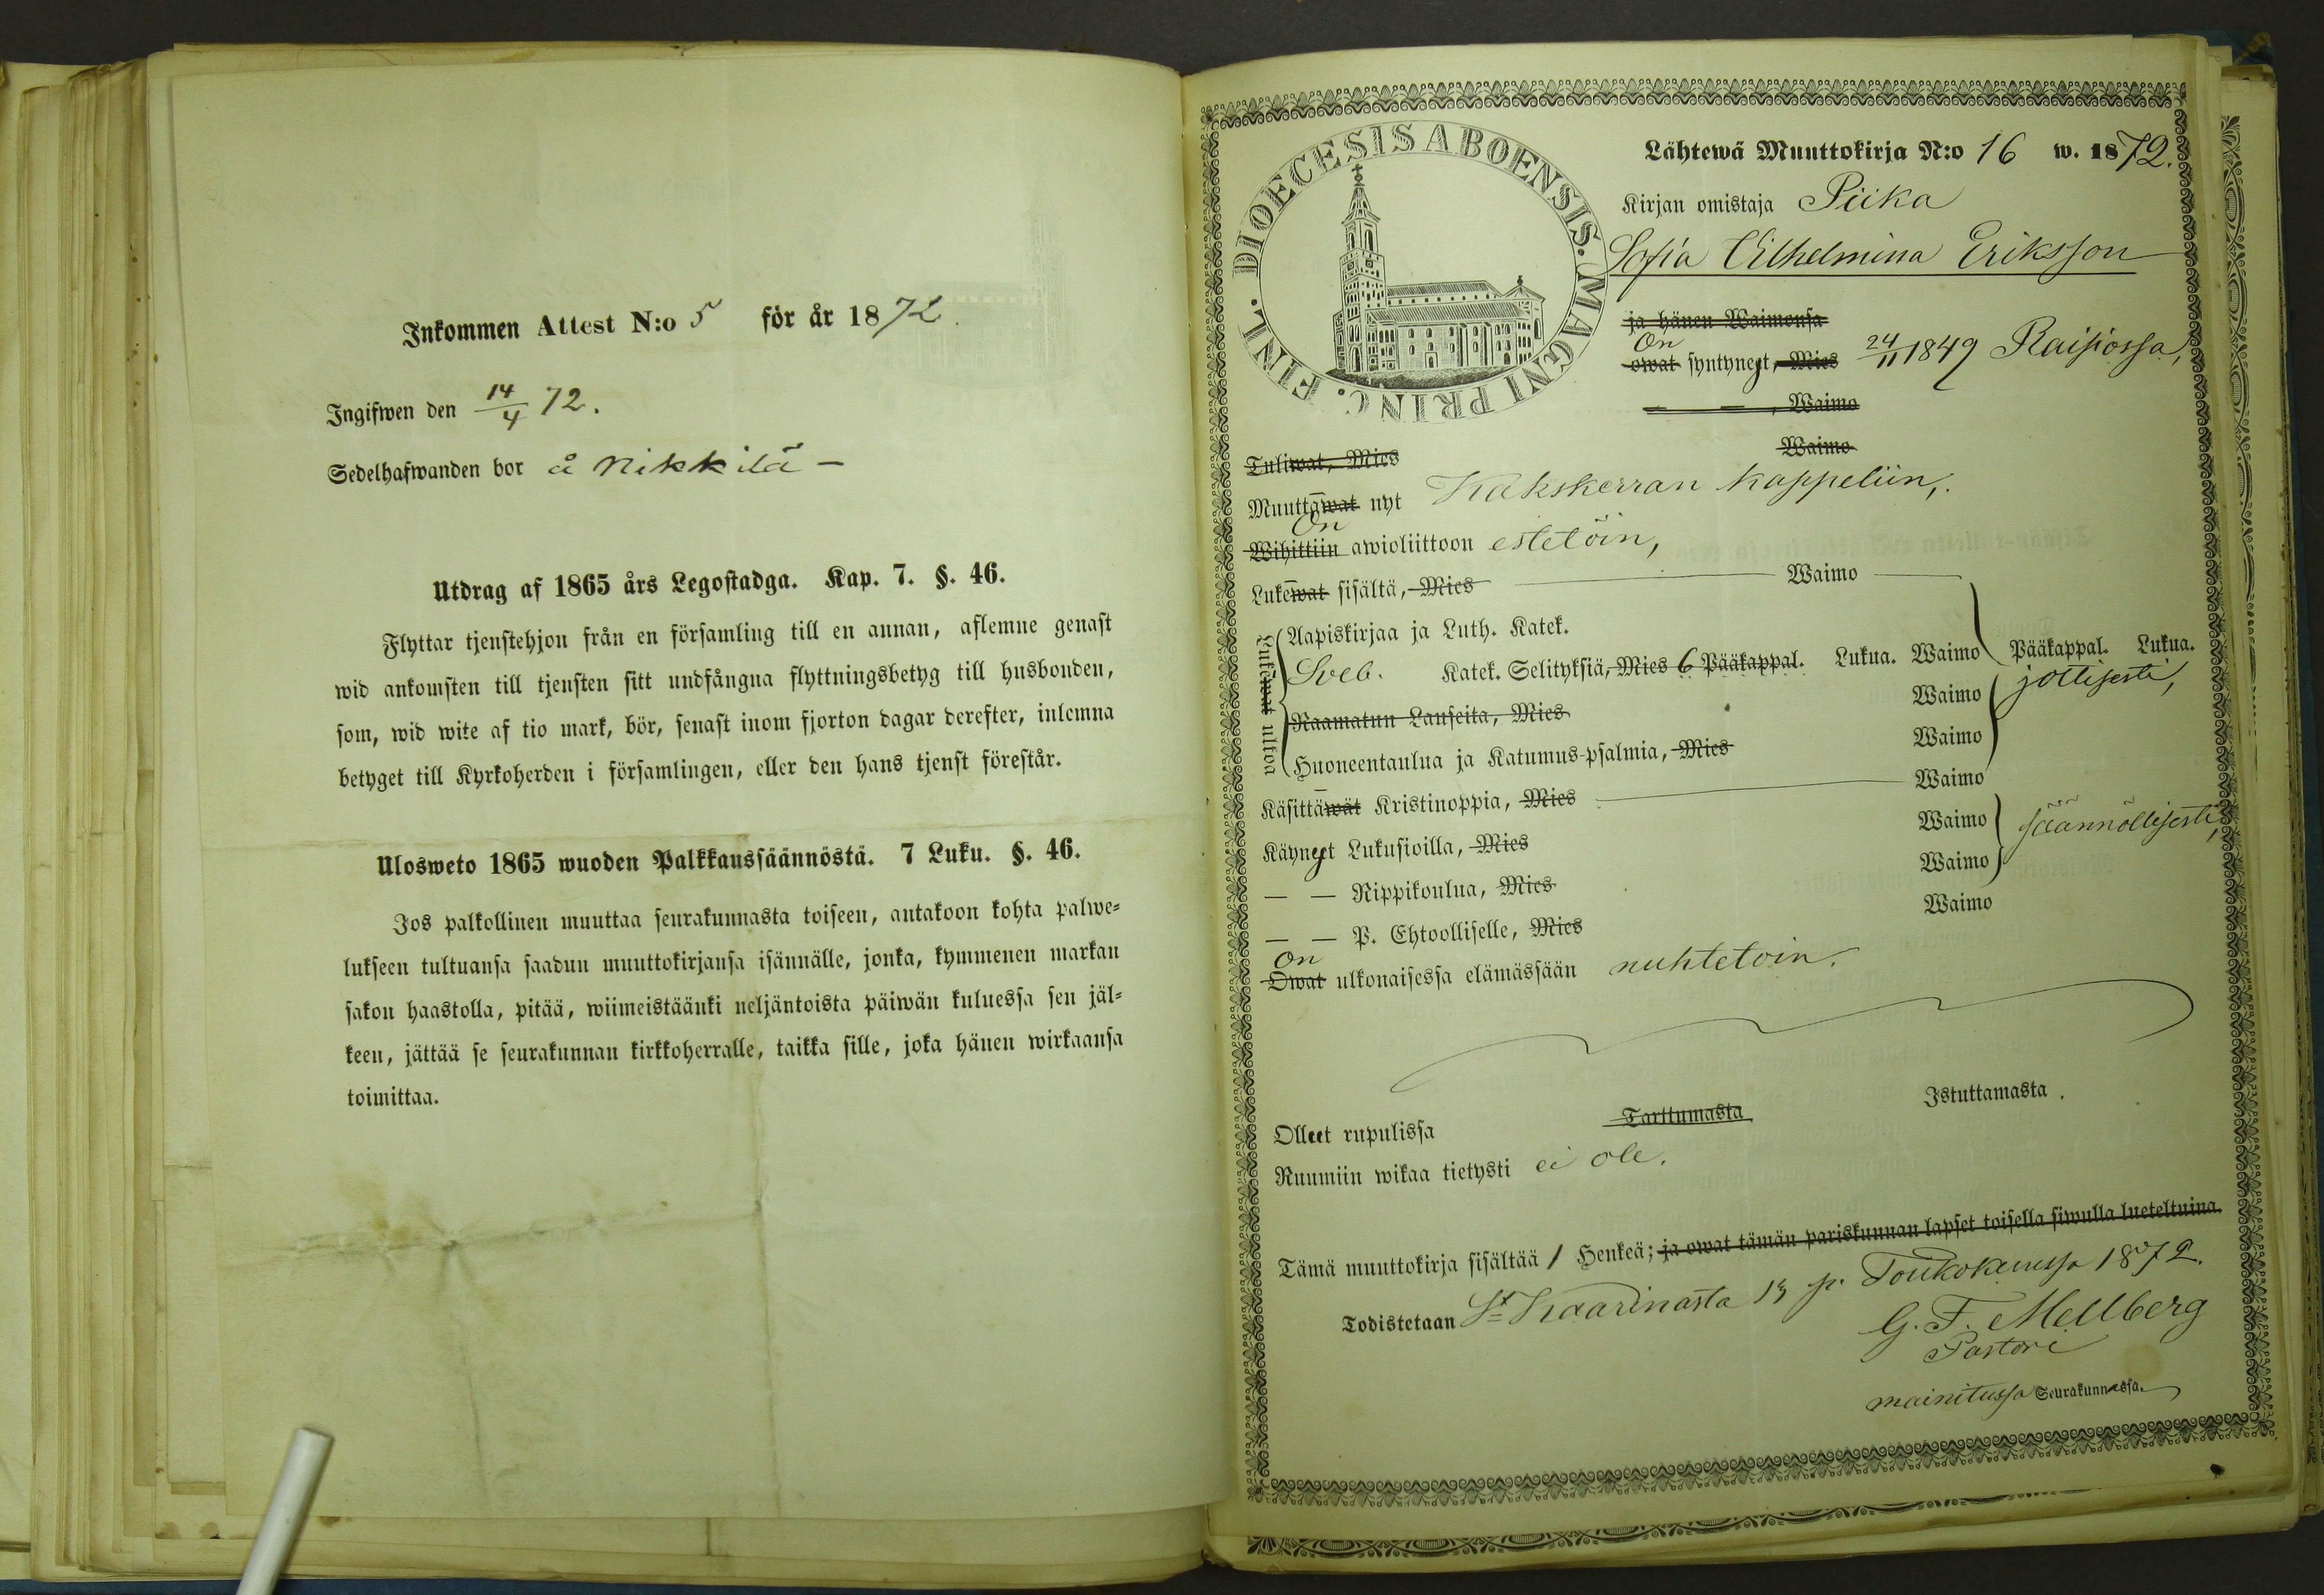 Inkommen Attest N:o 5 för år 1872.
Ingifwen den 14/4 72.
Sedelhafwanden bor å Nikkilä -
Utdrag af 1865 års Legostadga. Kap. 7. §. 46.
Flyttar tjenstehjon från en församling till en annan, aflemne genast
wid ankomsten till tjensten sitt undfångna flyttningsbetyg till husbonden,
som, wid wite af tio mark, bör, senast inom fjorton dagar derefter, inlemna
betyget till Kyrkoherden i församlingen, eller den hans tjenst förestår.
Ulosweto 1865 wuoden Palkkaussäännöstä. 7 Luku. §. 46.
Jos palkollinen muuttaa seurakunnasta toiseen, antakoon kohta palwe=
lukseen tultuansa saadun muuttokirjansa isännälle, jonka, kymmenen markan
sakon haastolla, pitää, wiimeistäänki neljäntoista päiwän kuluessa sen jäl=
keen, jättää se seurakunnan kirkkoherralle, taikka sille, joka hänen wirkaansa
toimittaa.
DIOECESIS ABOENSIS. MAGNI PRINC. FINL.
Lähtewä Muuttokirja N:o 16 w. 1872.
Kirjan omistaja Piika
Sofia Vilhelmina Eriksson
ja hänen Waimonsa
On
owat syntynyt, Mies 24/11 1849 Raisiossa,
— — , Waimo
Tuliwat, Mies Waimo
Muuttawat nyt Kakskerran kappeliin,
On
Wihittiin awioliittoon estetöin,
Lukewat sisältä, Mies Waimo
Lukewat ulkoa
Aapiskirjaa ja Luth. Katek.
Sveb. Katek. Selityksiä, Mies 6 Pääkappal. Lukua. Waimo Pääkappal. Lukua.
Raamatun Lauseita, Mies Waimo jottisesti,
Huoneentaulua ja Katumus-psalmia, Mies Waimo
Käsittäwät Kristinoppia, Mies Waimo
Käynyet Lukusioilla, Mies Waimo säännöllisesti,
— — Rippikoulua, Mies Waimo
— — P. Ehtoolliselle, Mies Waimo
On
Owat ulkonaisessa elämässään nuhtetoin.
Olleet rupulissa Tarttumasta Istuttamasta.
Ruumiin wikaa tietysti ei ole.
Tämä muuttokirja sisältää 1 Henkeä; ja owat tämän pariskunnan lapset toisella siwulla lueteltuina.
Todistetaan St Kaarinasta 13 p. Toukokuussa 1872.
G. F. Mellberg
Pastori
mainitussa Seurakunnassa.